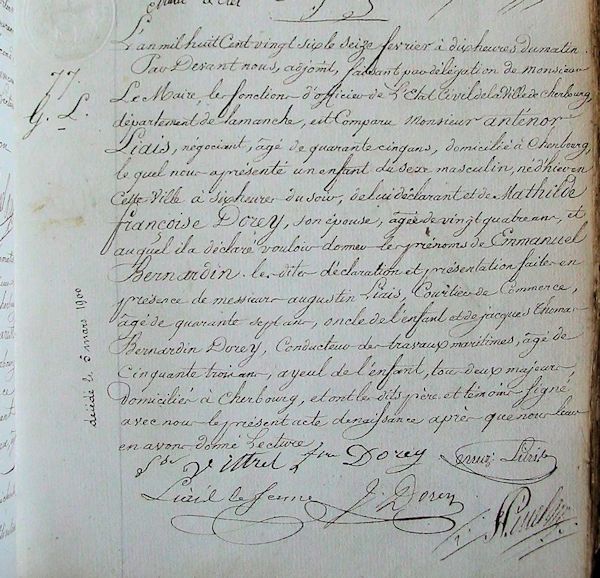 77.
G. L.
L'an mil huit Cent vingt six le seize fevrier à dix heures du matin
Par Devant nous, adjoint, faisant par délégation de monsieur
Le Maire les fonctions d'officier de L'Etat Civil de la Ville de Cherbourg,
département de lamanche, est Comparu Monsieur antenor
Liais, negociant, agé de quarante cinq ans, domicilié à Cherbourg,
le quel nous a présenté un enfant du sexe masculin, né d'hier en
Cette Ville à six heures du soir, de lui déclarant et de Mathilde
françoise Dorey, son épouse, âgée de vingt quatre ans, et
auquel il a déclaré vouloir donner les prénoms de Emmanuel
Bernardin. les dites déclaration et présentation faites en
présence de messieurs augustin Liais, Courtier de Commerce,
âgé de quarante sept ans, oncle de l'enfant et de jacques Thomas
Bernardin Dorey, Conducteur des travaux maritimes, agé de
Cinquante trois ans, ayeul de l'enfant, tous deux majeurs,
domiciliés à Cherbourg, et ont les dits père et témoins signé
avec nous le présent acte de naissance après que nous leur
en avons donné Lecture.
décédé le 5 mars 1900
Dorey
J. Dorey